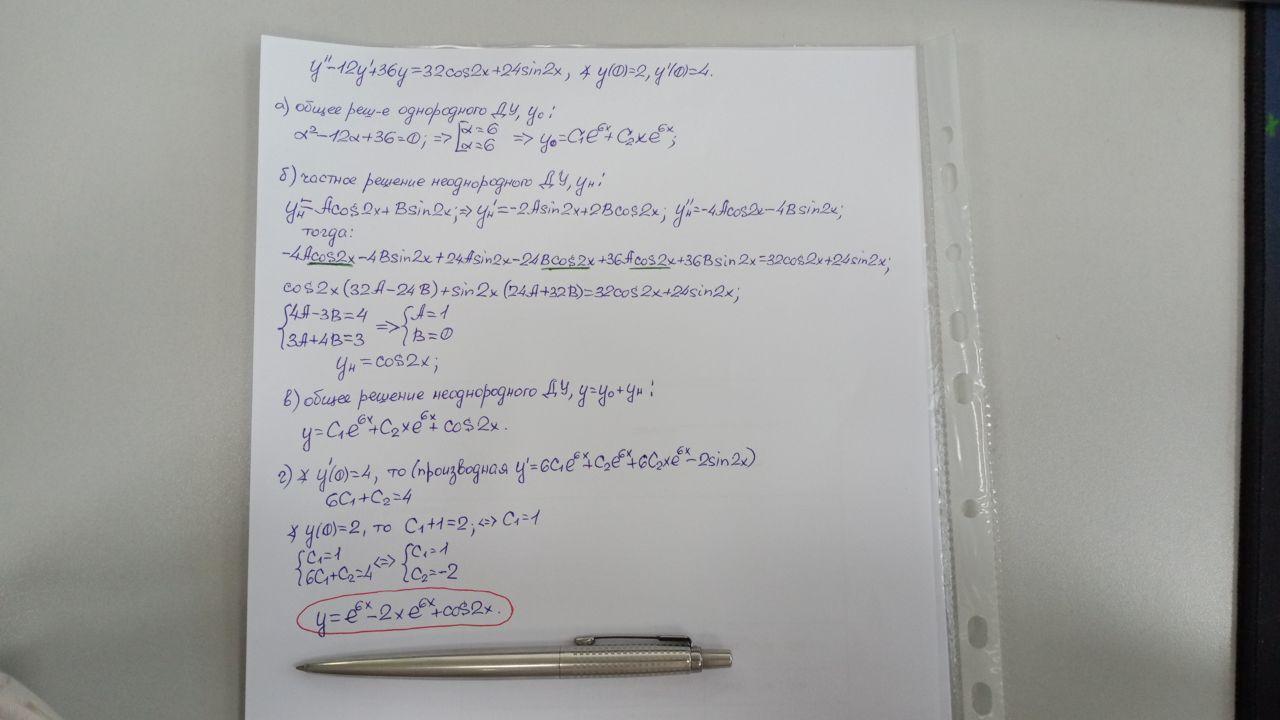 y''-12y'+36y=32cos2x+24sin2x, ∢ y(0)=2, y'(0)=4.
а) общее реш-е однородного ДУ, y₀:
α²-12α+36=0; => [α=6 α=6 => y₀=C₁e^{6x}+C₂xe^{6x};
б) частное решение неоднородного ДУ, yн:
yн=Acos2x+Bsin2x; => yн'=-2Asin2x+2Bcos2x; yн''=-4Acos2x-4Bsin2x;
тогда:
-4Acos2x-4Bsin2x+24Asin2x-24Bcos2x+36Acos2x+36Bsin2x=32cos2x+24sin2x;
cos2x(32A-24B)+sin2x(24A+32B)=32cos2x+24sin2x;
{4A-3B=4 3A+4B=3 => {A=1 B=0
yн=cos2x;
в) общее решение неоднородного ДУ, y=y₀+yн:
y=C₁e^{6x}+C₂xe^{6x}+cos2x.
г) ∢ y'(0)=4, то (производная y'=6C₁e^{6x}+C₂e^{6x}+6C₂xe^{6x}-2sin2x)
6C₁+C₂=4
∢ y(0)=2, то C₁+1=2; <=> C₁=1
{C₁=1 6C₁+C₂=4 <=> {C₁=1 C₂=-2
y=e^{6x}-2xe^{6x}+cos2x.